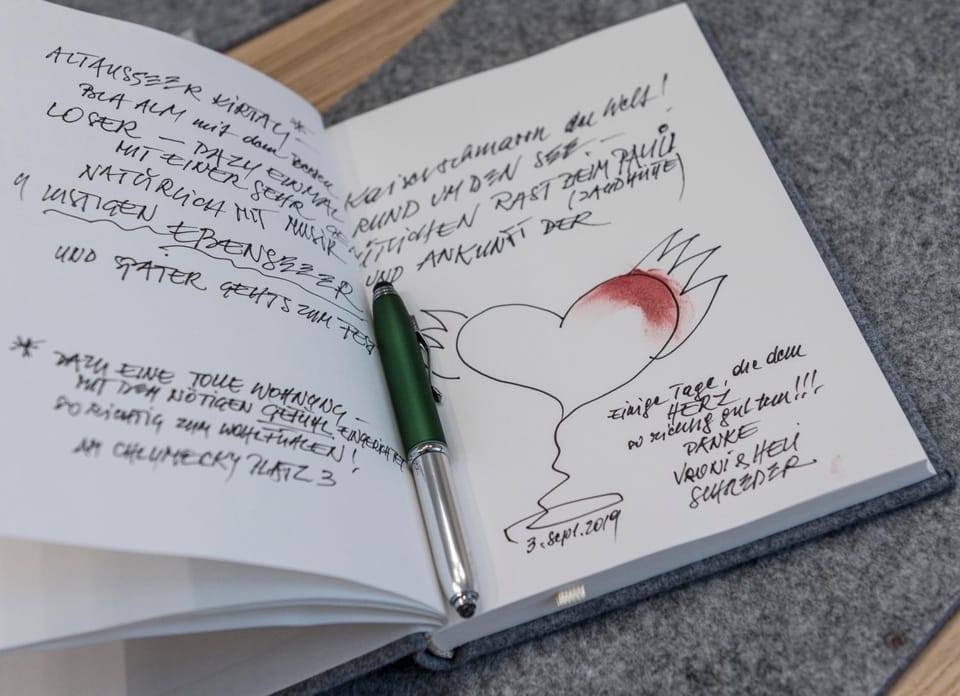 ALTAUSSEER KIRTAG *
BLA ALM mit dem Besten Kaiserschmarrn der Welt!
LOSER — DAZU EINMAL RUND UM DEN SEE —
MIT EINER SEHR GEMÜTLICHEN RAST BEIM PAULI
(JAGDHÜTTE)
NATÜRLICH MIT MUSIK UND ANKUNFT DER
4 LUSTIGEN EBENSEEER
UND SPÄTER GEHTS ZUM
* DAZU EINE TOLLE WOHNUNG —
MIT DEM NÖTIGEN GEFÜHL EINGERICHTET
SO RICHTIG ZUM WOHLFÜHLEN!
AM CHLUMECKY PLATZ 3
Einige Tage, die dem
HERZ
so richtig gut tun!!!
DANKE
& HELI
SCHREDER
3. Sept. 2019